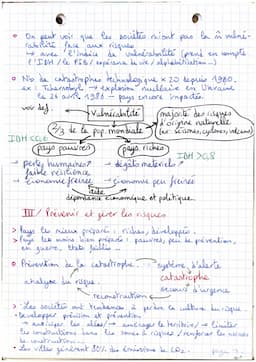 ○ On peut voir que les sociétés n'ont pas la m̂ vulné-
rabilité face aux risques
→ avec l'indice de vulnérabilité (prend en compte
l'IDH / le PIB / espérance de vie / alphabétisation...)
○ Nb de catastrophes technologique x 20 depuis 1980.
ex : Tchernobyl → explosion nucléaire en Ukraine
le 26 avril 1986 → pays encore impactés.
voir def. Vulnérabilité
majorité des risques
2/3 de la pop mondiale
d'origine naturelle
(ex: séismes, cyclones, volcans)
pays pauvres
pays riches
→ pertes humaines↗
→ dégâts matériels↗
faible résilience
→ Économie freinée
→ Économie peu freinée
aide
dépendance économique et politique.
III/ Prévenir et gérer les risques
> Pays les mieux préparés : riches, développés.
> Pays les moins bien préparés : pauvres, peu de prévention,
en guerre, états faibles...
○ Prévention de la catastrophe → système d'alerte
analyse du risque
catastrophe
secours d'urgence
reconstruction
• Les sociétés ont tendances à perdre la culture du risque.
• développer prévision et prévention
→ anticiper les aléas / → aménager le territoire / → limiter
les constructions dans les zones à risques / renforcer les normes
de construction...
• Les villes génèrent 80% des émissions de CO2.